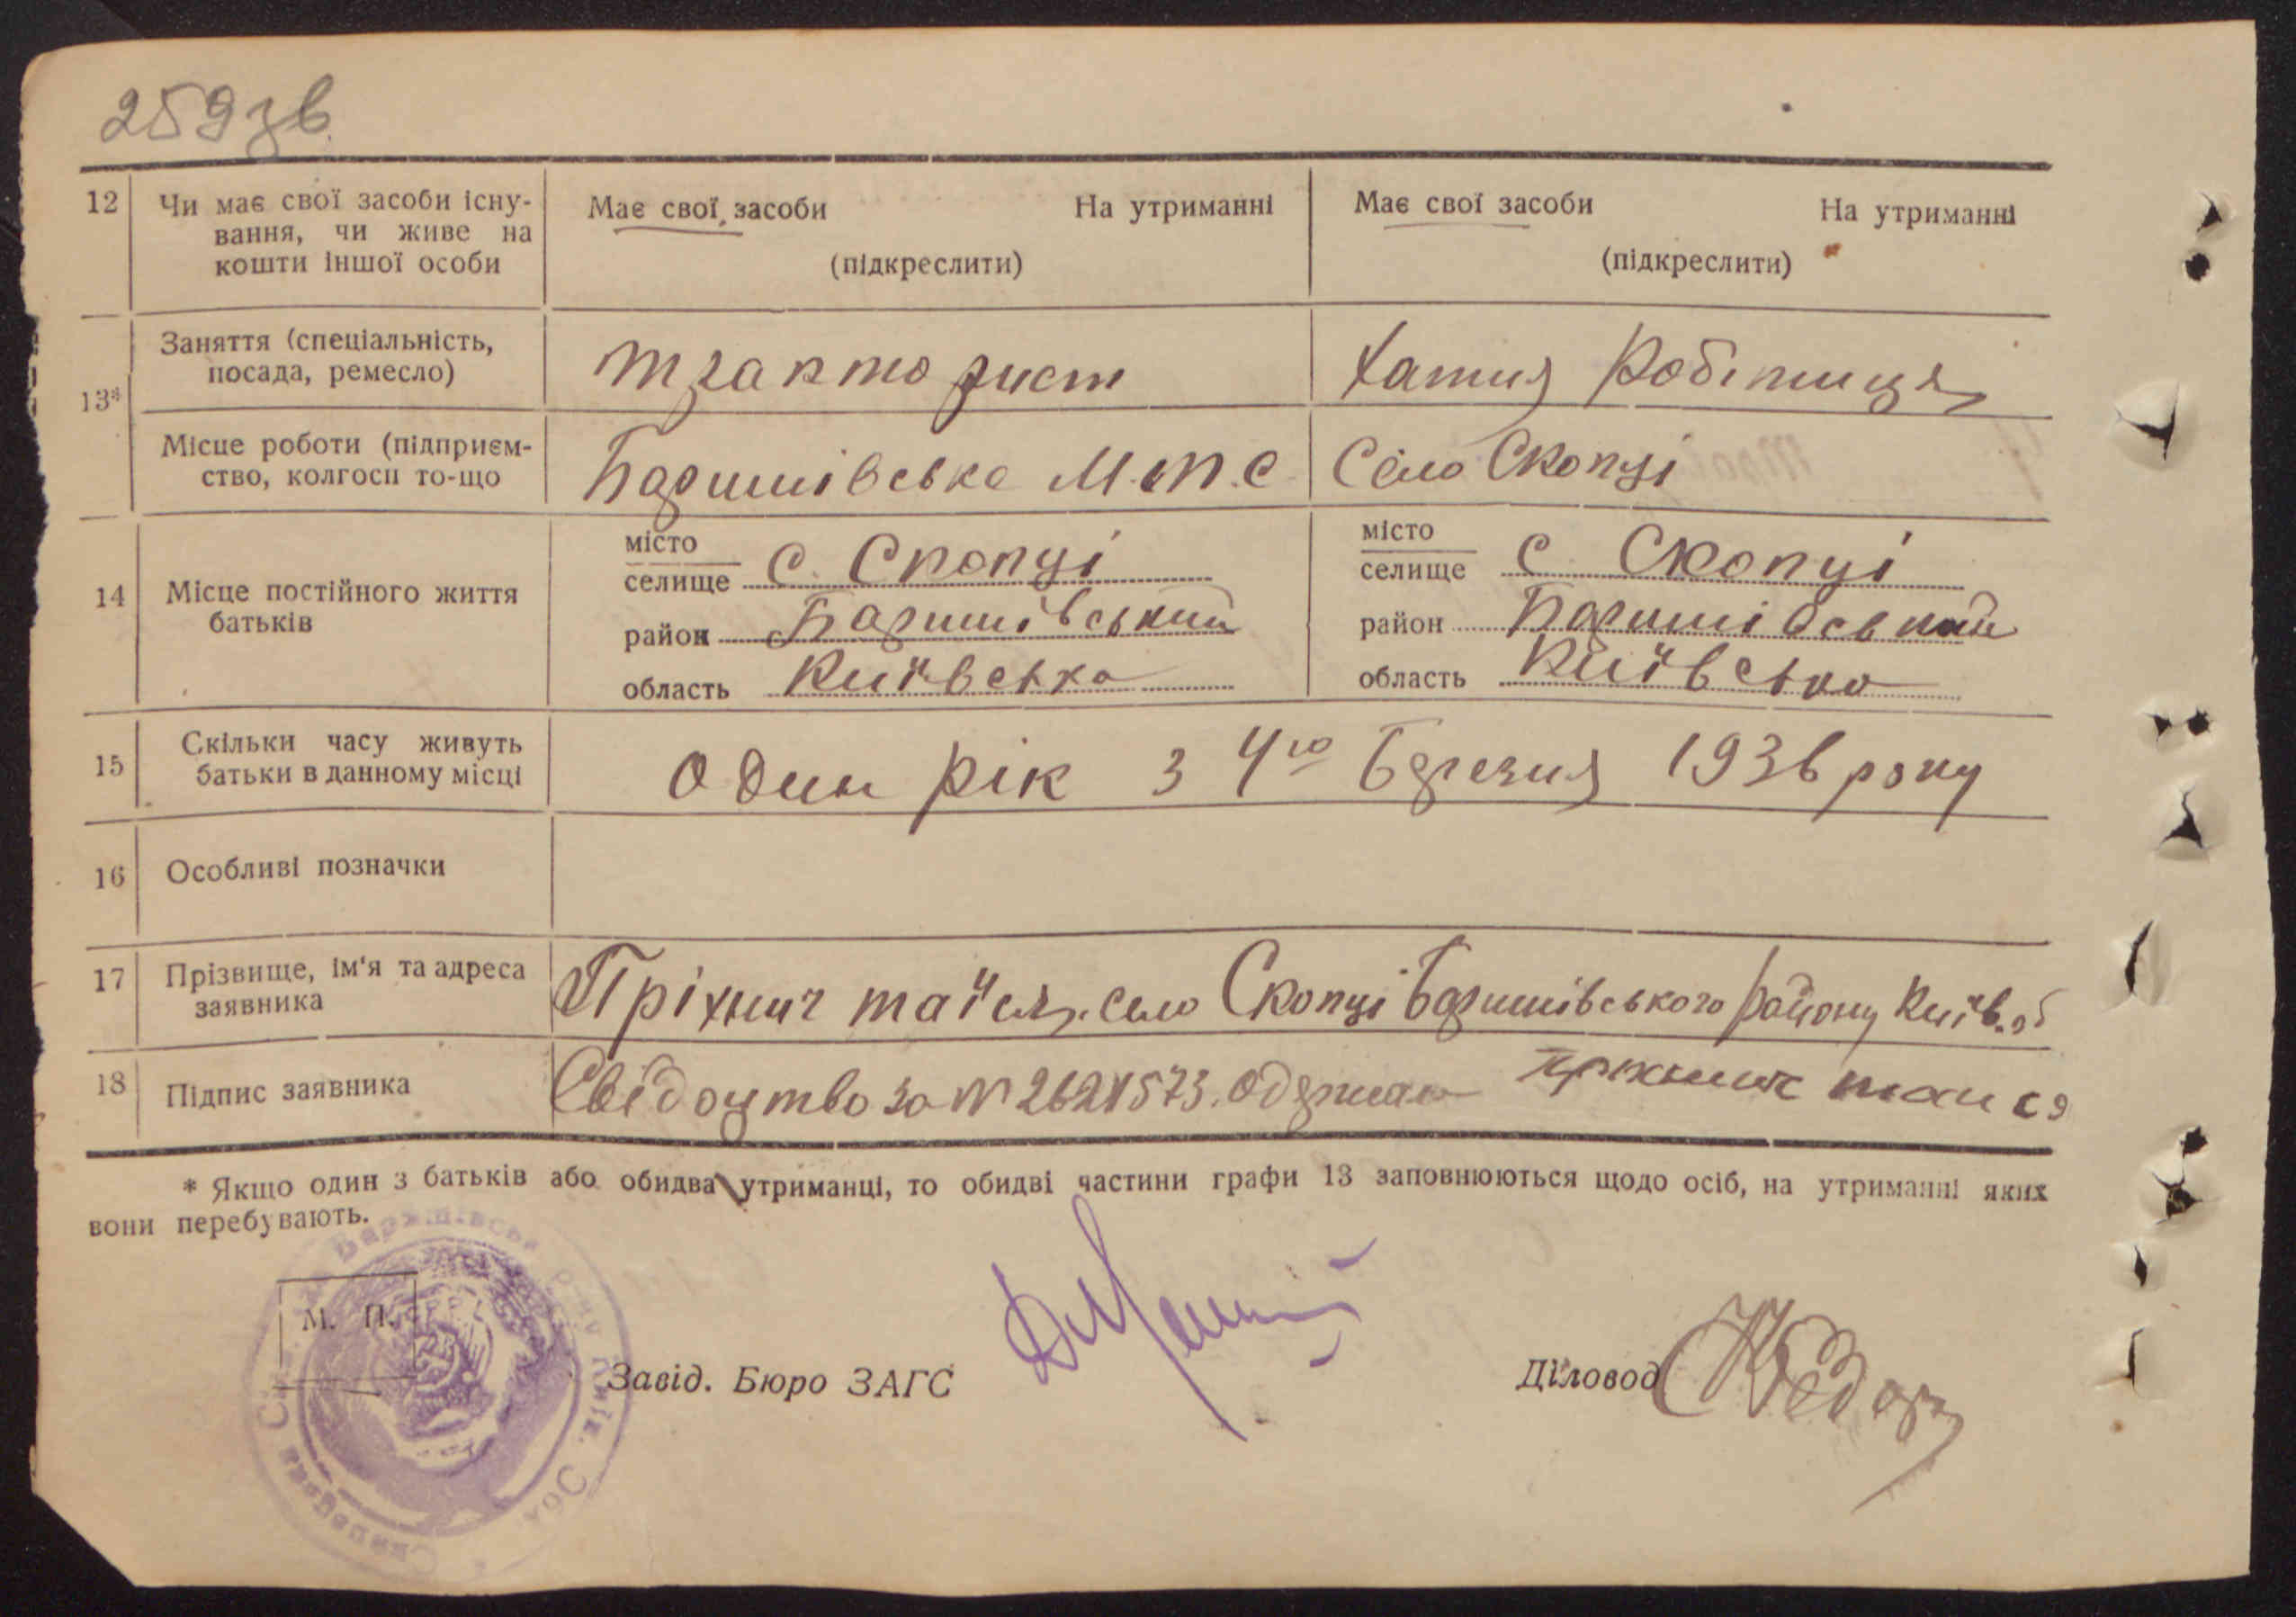 259 зв
12 Чи має свої засоби існу-
вання, чи живе на
кошти іншої особи
Має свої засоби На утриманні
(підкреслити)
Має свої засоби На утриманні
(підкреслити)
13*
Заняття (спеціальність,
посада, ремесло)
тракторист
хатня робітниця
Місце роботи (підприєм-
ство, колгосп то-що
Баришівська М.Т.С
Село Скопці
14 Місце постійного життя
батьків
місто
селище с. Скопці
район Баришівський
область Київська
місто
селище с Скопці
район Баришівський
область Київська
15 Скільки часу живуть
батьки в данному місці
один рік з 4го березня 1936 року
16 Особливі позначки
17 Прізвище, ім'я та адреса
заявника
Пріхнич таїся, село Скопці Баришівського району Київ. об
18 Підпис заявника
Свідоцтво за № 2621573. одержала
* Якщо один з батьків або обидва утриманці, то обидві частини графи 13 заповнюються щодо осіб, на утриманні яких
вони перебувають.
М. П.
Завід. Бюро ЗАГС
Діловод